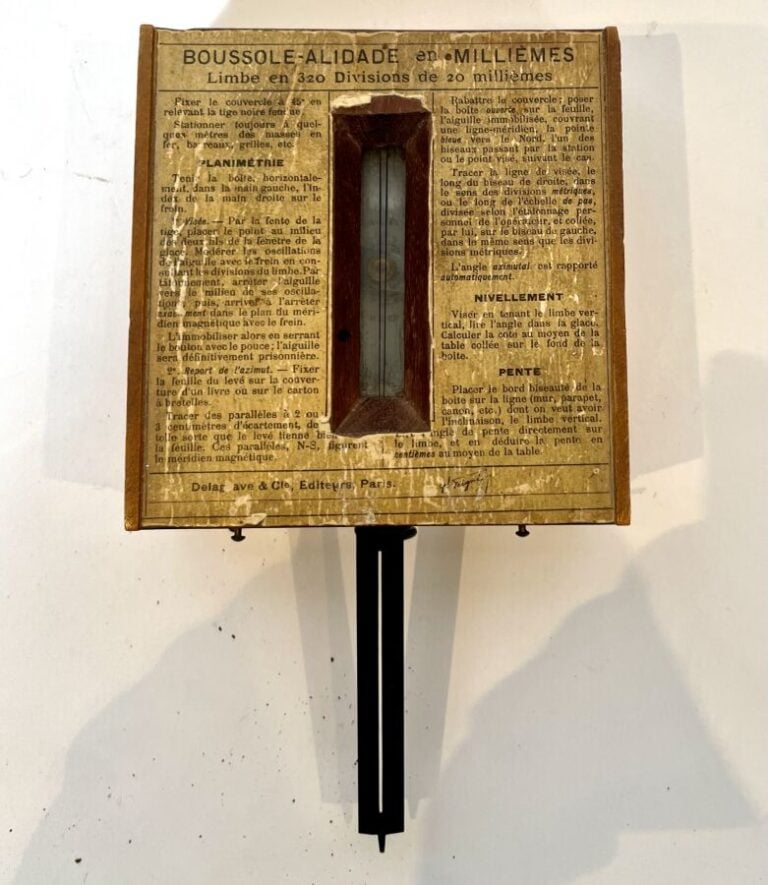 BOUSSOLE-ALIDADE en MILLIÈMES
Limbe en 320 Divisions de 20 millièmes
Fixer le couvercle à 45° en
relevant la tige noire fendue.
Stationner toujours à quel-
ques mètres des masses en
fer, barreaux, grilles, etc.
PLANIMÉTRIE
Tenir la boîte, horizontale-
ment, dans la main gauche, l'in-
dex de la main droite sur le
frein.
Visée. — Par la fente de la
tige, placer le point au milieu
des deux fils de la fenêtre de la
glace. Modérer les oscillations
de l'aiguille avec le frein en con-
sultant les divisions du limbe. Par
tâtonnement, arrêter l'aiguille
vers le milieu de ses oscilla-
tions, puis, arriver à l'arrêter
exactement dans le plan du méri-
dien magnétique avec le frein.
L'immobiliser alors en serrant
le bouton avec le pouce; l'aiguille
sera définitivement prisonnière.
2°. Report de l'azimut. — Fixer
la feuille du levé sur la couver-
ture d'un livre ou sur le carton
à bretelles.
Tracer des parallèles à 2 ou
3 centimètres d'écartement, de
telle sorte que le levé tienne bien
la feuille. Ces parallèles, N-S, figurent
le méridien magnétique.
Rabattre le couvercle; poser
la boîte ouverte sur la feuille,
l'aiguille immobilisée, couvrant
une ligne-méridien, la pointe
bleue vers le Nord, l'un des
biseaux passant par la station
ou le point visé, suivant le cas.
Tracer la ligne de visée, le
long du biseau de droite, dans
le sens des divisions métriques,
ou le long de l'échelle de pas,
divisée selon l'étalonnage per-
sonnel de l'opérateur, et collée,
par lui, sur le biseau de gauche,
dans le même sens que les divi-
sions métriques.
L'angle azimutal est rapporté
automatiquement.
NIVELLEMENT
Viser en tenant le limbe ver-
tical, lire l'angle dans la glace.
Calculer la cote au moyen de la
table collée sur le fond de la
boîte.
PENTE
Placer le bord biseauté de la
boîte sur la ligne (mur, parapet,
canon, etc.) dont on veut avoir
l'inclinaison, le limbe vertical.
angle de pente directement sur
le limbe, et en déduire la pente en
centièmes au moyen de la table.
Delagrave & Cie, Editeurs, Paris.